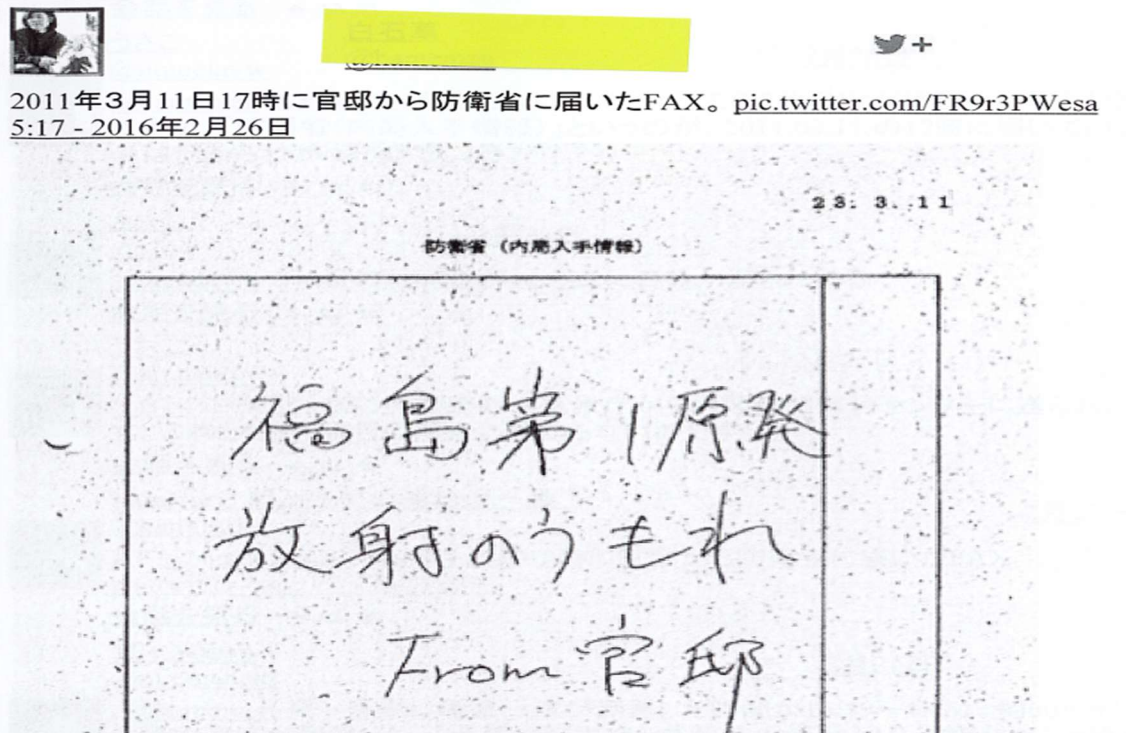 2011年3月11日17時に官邸から防衛省に届いたFAX。pic.twitter.com/FR9r3PWesa
5:17 - 2016年2月26日
23. 3. 11
防衛省(内局入手情報)
福島第1原発
放射のうもれ
From 官邸